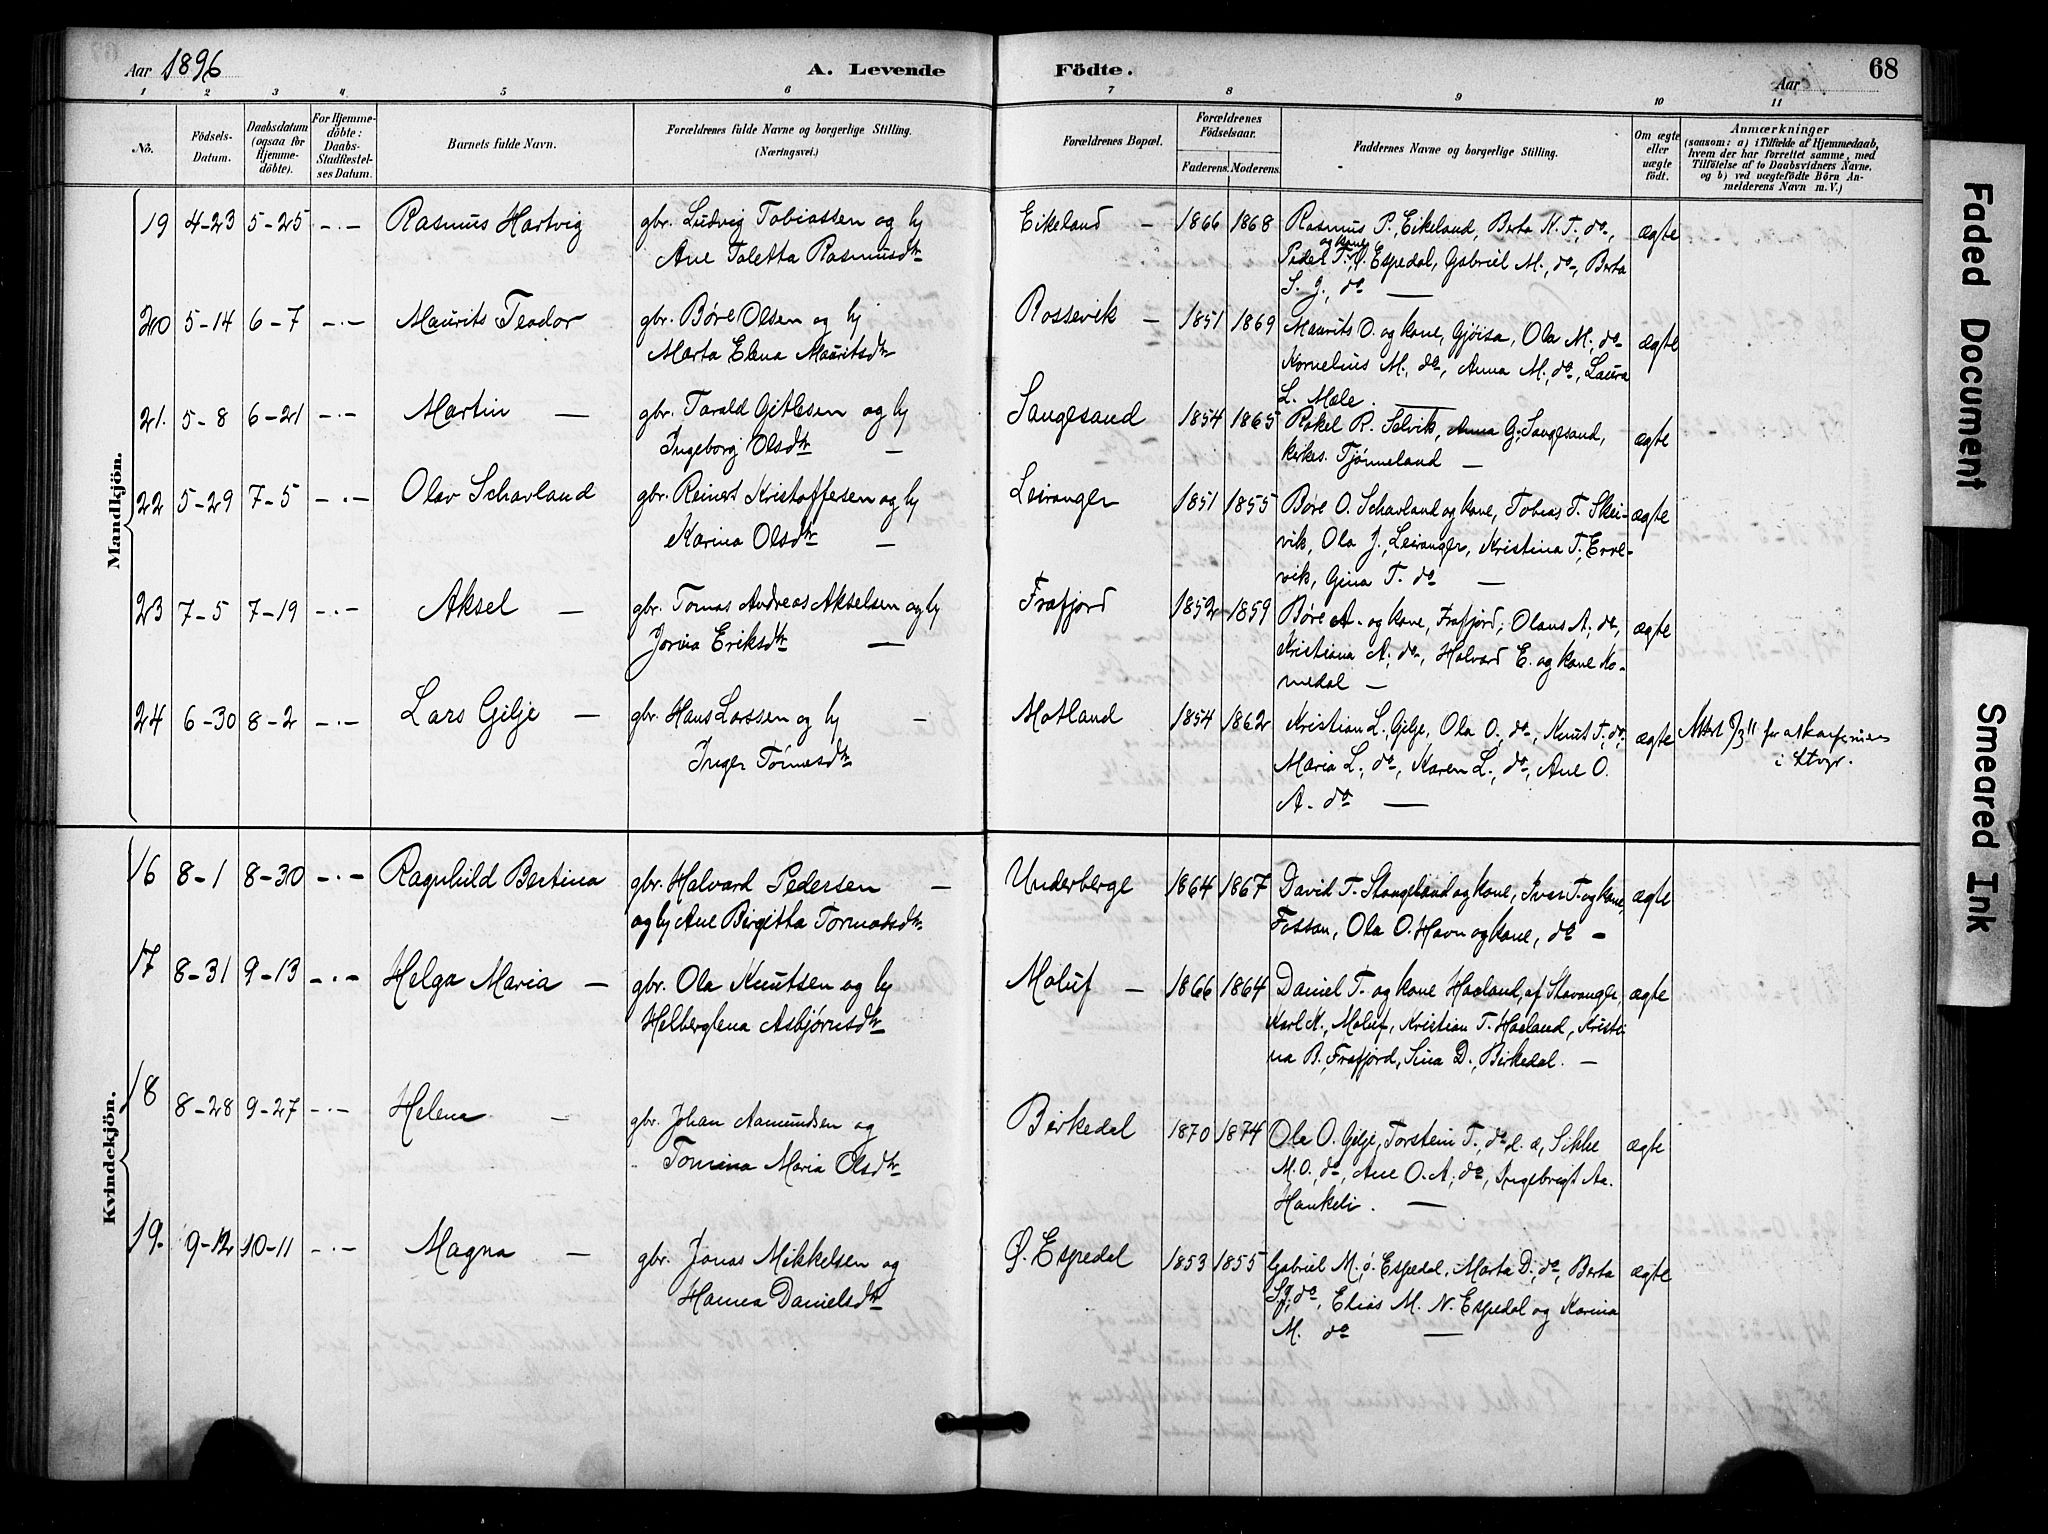 Aar 1896 A. Levende Födte. Aar 68
1 2 3 4 5 6 7 8 9 10 11
No.
Födsels-Datum.
Daabsdatum (ogsaa for Hjemmedöbte).
For Hjemmedöbte: Daabs-Stadfestelses Datum.
Barnets fulde Navn.
Forældrenes fulde Navne og borgerlige Stilling. (Næringsvei.)
Forældrenes Bopæl.
Forældrenes Födselsaar. Faderens. Moderens.
Faddernes Navne og borgerlige Stilling.
Om ægte eller uægte födt.
Anmærkninger (saasom: a) i Tilfælde af Hjemmedaab, hvem der har forrettet samme, med Tilföielse af to Daabsvidners Navne, og b) ved uægtefödte Börn Anmelderens Navn m. V.)
Mandkjön.
19 4-23 5-25 -.- Rasmus Hartvig gbr. Ludvig Tobiassen og hj Eikeland - 1866 1868 Rasmus P., Eikeland, Berta K. T., do, ægte
Ane Taletta Rasmusdtr og kone Peder T. Ø. Espedal, Gabriel M., do, Berta
S. G., do —
20 5-14 6-7 -.- Maurits Teodor gbr. Børe Olsen og hj Rossevik - 1851 1869 Maurits O. og kone, Gjøisa, Ola M., do ægte
Marta Elena Mauritsdtr Kornelius M., do, Anna M., do, Laura
L. Mæle. —
21. 5-8 6-21 -.- Martin — gbr. Tarald Gitlesen og hj Sangesand 1854 1865 Rakel R. Selvik, Anna G., Sangesand, ægte
Ingeborg Olsdtr — kirkes. Tjønneland —
22 5-29 7-5 -.- Olav Schavland gbr. Reinert Kristoffersen og hj Leiranger 1851 1855 Børe O. Schavland og kone, Tobias T. Skei- ægte
Karina Olsdtr — vik, Ola J., Leiranger, Kristina T., Erve-
vik, Gina T. do —
23 7-5 7-19 -.- Aksel — gbr. Tomas Andreas Akselsen og hj Frafjord 1852 1859 Børe A. og kone, Frafjord, Olaus A., do, ægte
Jorina Eriksdtr — Kristiana A., do, Halvard E. og kone Ko-
medal —
24 6-30 8-2 -.- Lars Gilje — gbr. Hans Larssen og hj - Motland 1854 1862 Kristian L. Gilje, Ola O., do, Knut T., do, ægte Attest
Inger Tórnesdtr Maria L., do, Karen L., do, Ane O.
A. do —
Kvindekjön.
16 8-1 8-30 -.- Ragnhild Bertina gbr. Halvard Pedersen — Underberge 1864 1867 David T. Stangeland og kone, Iver T. og kone, ægte
og hj Ane Birgitta Tormodsdtr Fossan, Ola O. Havn og kone, do -
17 8-31 9-13 -.- Helga Maria — gbr. Ola Knutsen og hj Moluf - 1866 1864 Daniel T. og kone Haaland, af Stavanger, ægte
Helberglena Asbjørnsdtr Karl K., Moluf, Kristian T. Haaland, Kristi-
na B., Frafjord, Sina D., Birkedal. —
18 8-28 9-27 -.- Helene — gbr. Johan Aamundsen og Birkedal 1870 1874 Ola O. Gilje, Torstein T., do l. a, Sikke ægte
" Tomina Maria Olsdtr M. O. do, Ane O. A., do, Ingebregt Aa.
Hankeli. —
19. 9-12 10-11 -.- Magna — gbr. Jonas Mikkelsen og Ø. Espedal 1853 1855 Gabriel M., ø. Espedal, Marta D., do, Berta ægte
Hanna Danielsdtr S. g., do, Elias M. N. Espedal og Karina
M. do —
Faded Document
Smeared Ink